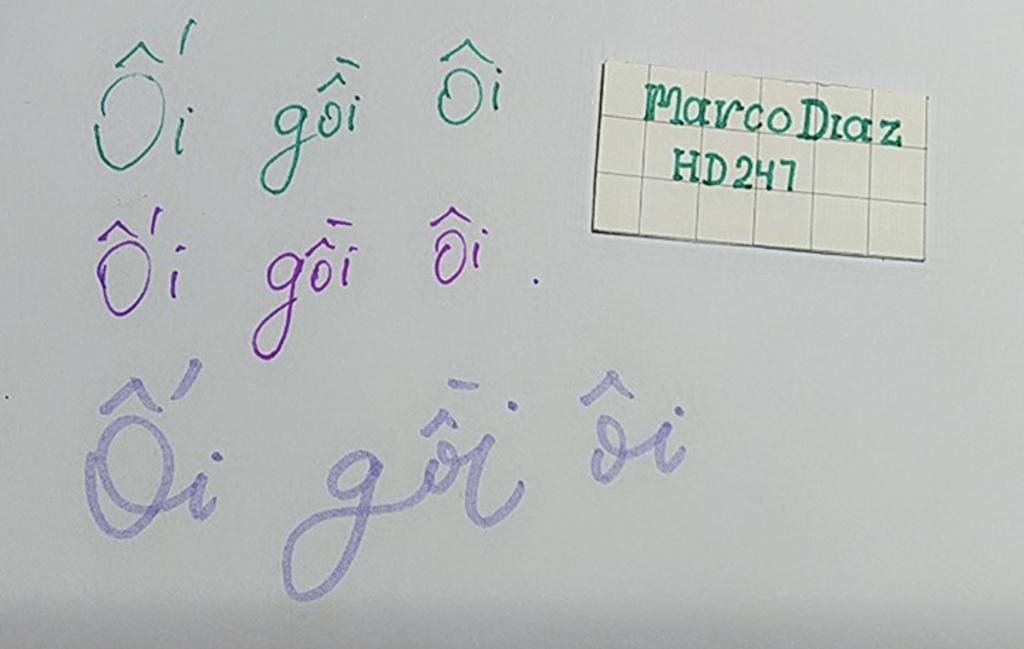 Ối gồi ôi
Marco Diaz
HD247
Ối gồi ôi.
Ối gồi ôi